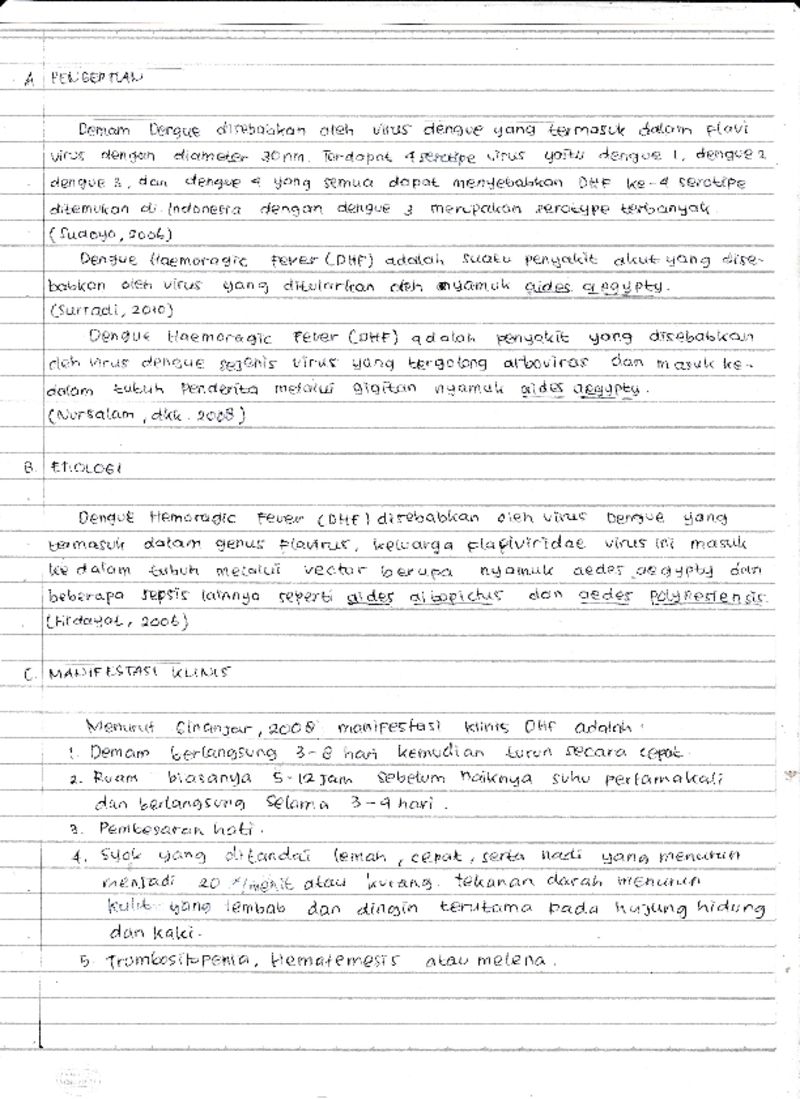 A. PENGERTIAN
Demam Dengue disebabkan oleh virus dengue yang termasuk dalam Flavi
virus dengan diameter 30 nm. Terdapat 4 serotipe virus yaitu dengue 1, dengue 2
dengue 3, dan dengue 4 yang semua dapat menyebabkan DHF ke-4 serotipe
ditemukan di Indonesia dengan dengue 3 merupakan serotype terbanyak.
(Sudoyo, 2006)
Dengue Haemoragic Fever (DHF) adalah suatu penyakit akut yang dise-
babkan oleh virus yang ditularkan oleh nyamuk aides aegypty.
(Surradi, 2010)
Dengue Haemoragic Fever (DHF) adalah penyakit yang disebabkan
oleh virus dengue sejenis virus yang tergolong arbovirus dan masuk ke-
dalam tubuh penderita melalui gigitan nyamuk aides aegypty.
(Nursalam, dkk. 2008)
B. ETIOLOGI
Dengue Hemoragic Fever (DHF) disebabkan oleh virus Dengue yang
termasuk dalam genus Flavirus, keluarga flapiviridae virus ini masuk
ke dalam tubuh melalui vector berupa nyamuk aedes aegypty dan
beberapa sepsis lainnya seperti aides albopictus dan aedes polynesiensis.
(Hidayat, 2006)
C. MANIFESTASI KLINIS
Menurut Ginanjar, 2008 manifestasi klinis DHF adalah:
1. Demam berlangsung 3-8 hari kemudian turun secara cepat.
2. Ruam biasanya 5-12 jam sebelum naiknya suhu pertamakali
dan berlangsung selama 3-4 hari.
3. Pembesaran hati.
4. Syok yang ditandai lemah, cepat, serta nadi yang menurun
menjadi 20 x/menit atau kurang. tekanan darah menurun
kulit yang lembab dan dingin terutama pada hujung hidung
dan kaki.
5. Trombositopenia, Hematemesis atau melena.